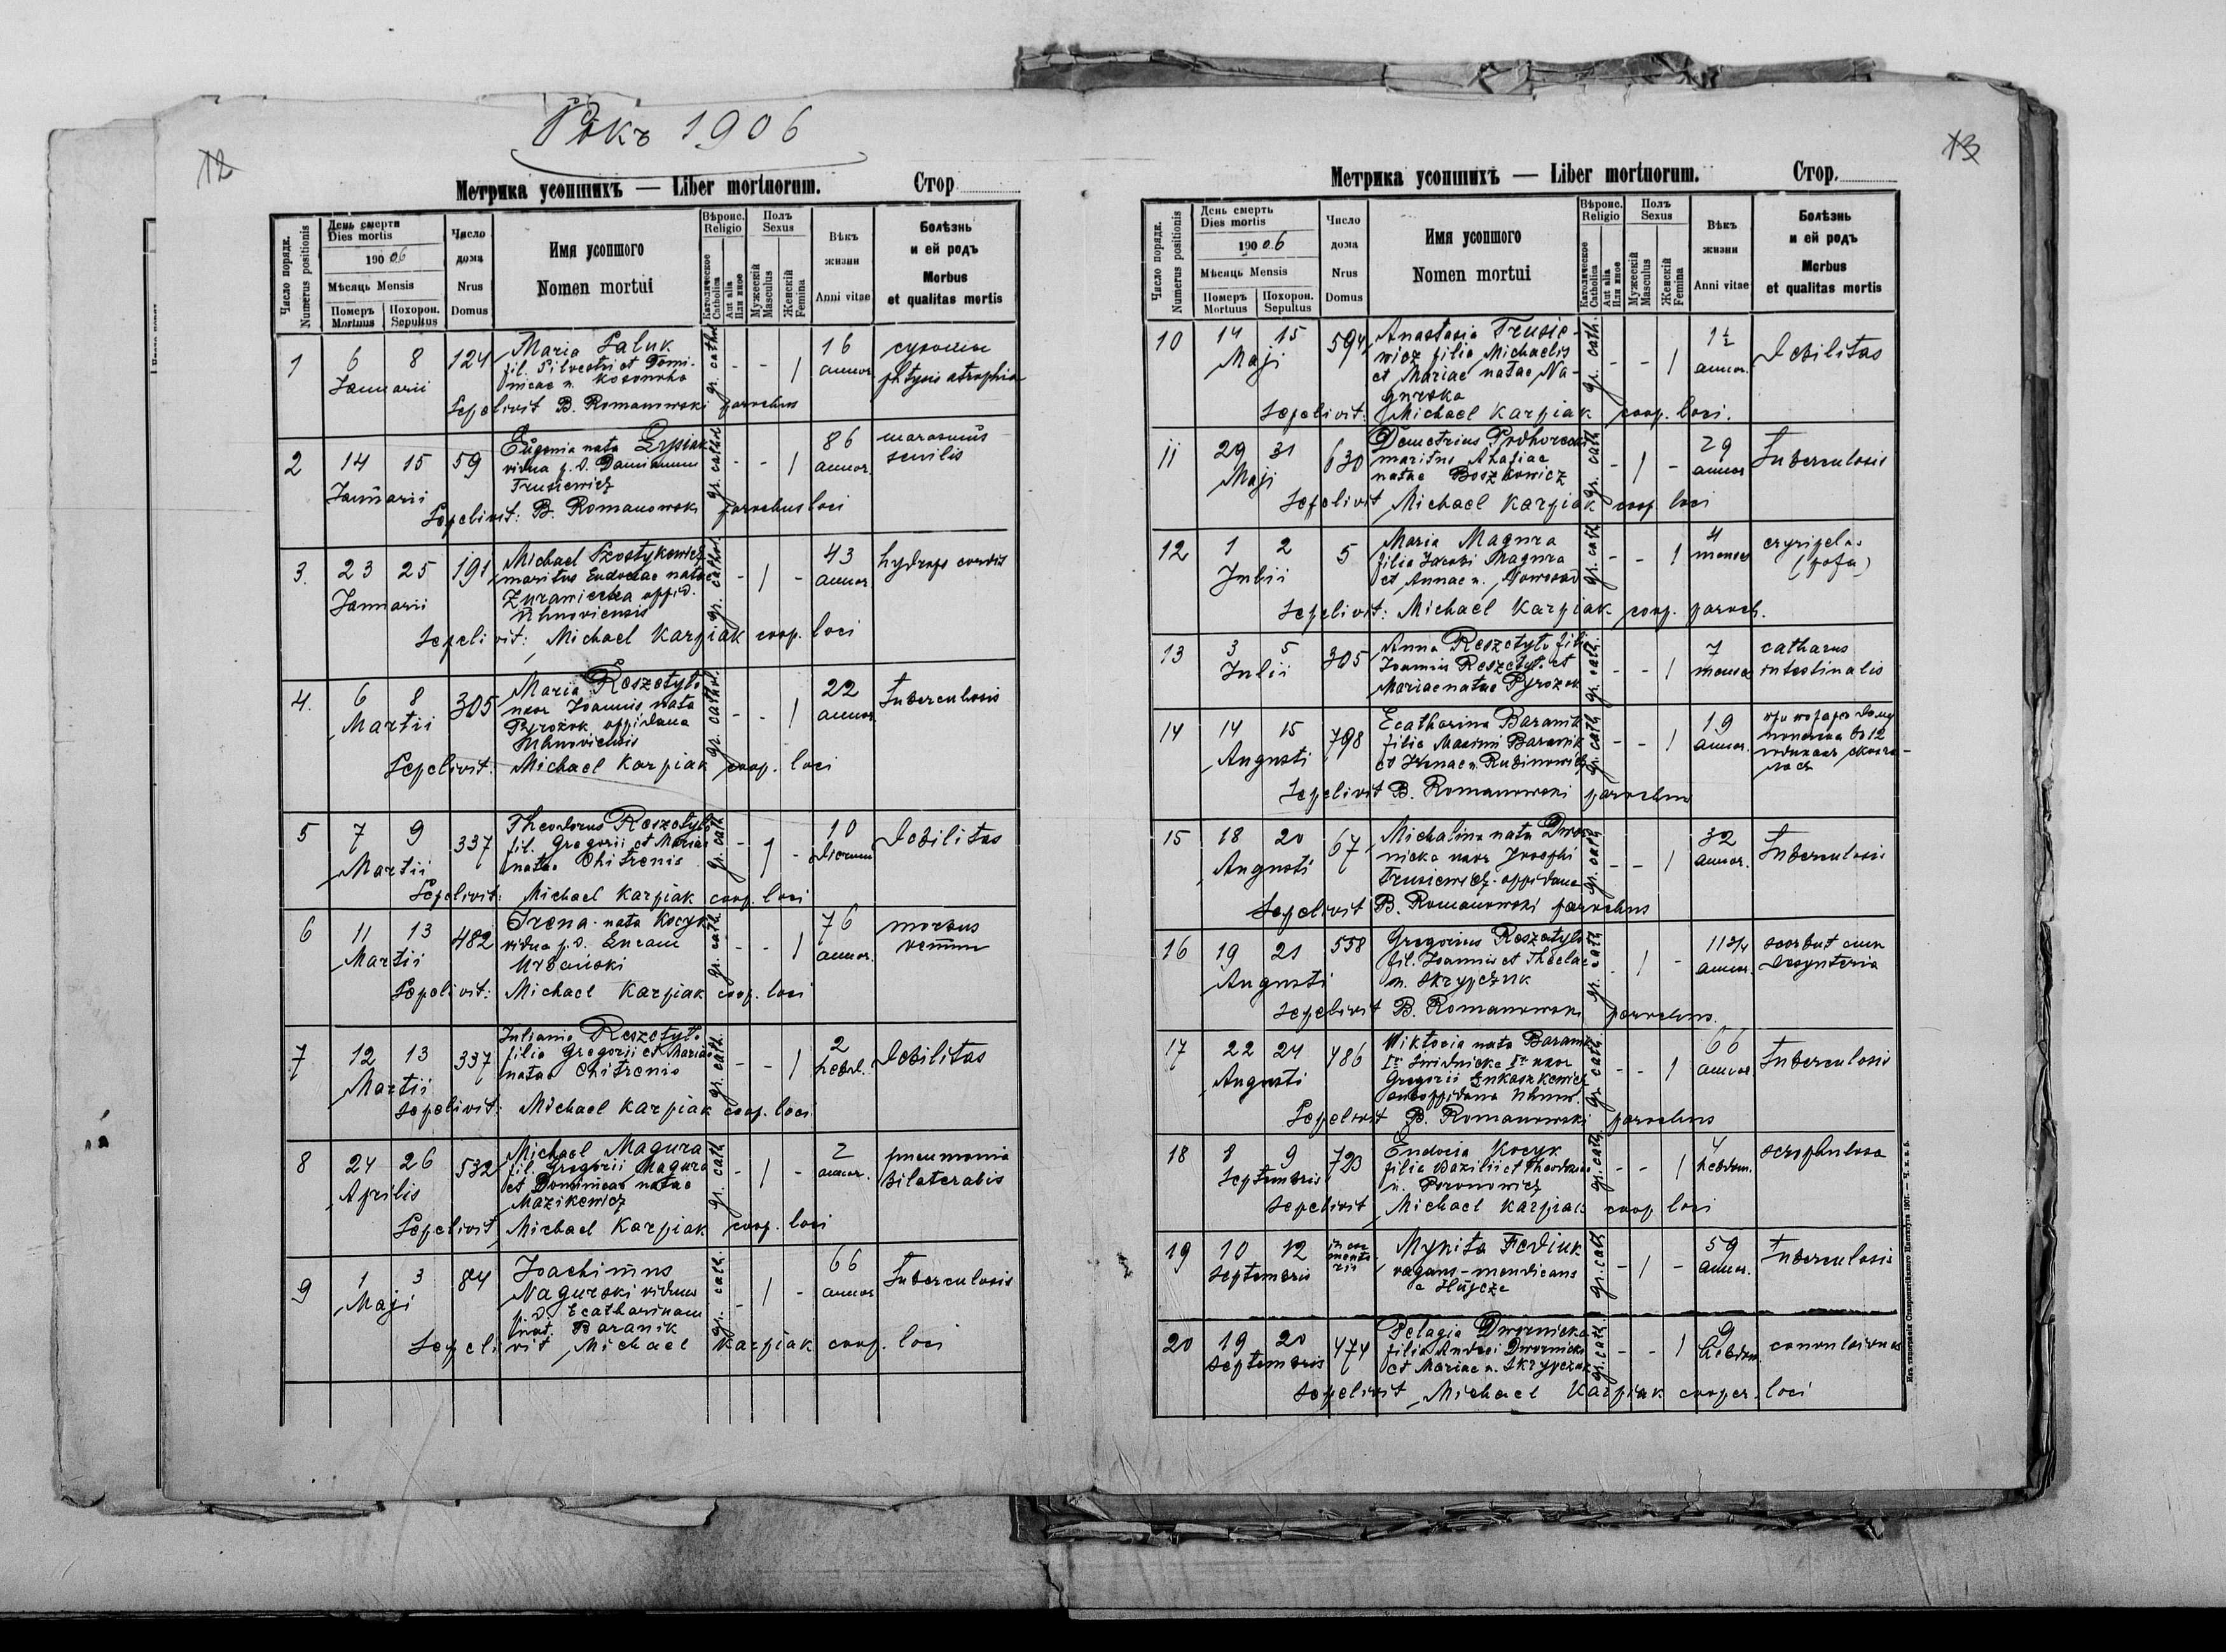 Рôкъ 1906
12
Метрика усопшихъ — Liber mortuorum. Стор
Число порядк. Numerus positionis
День смерти Dies mortis
1906
Мѣсяць Mensis
Померъ Mortuus
Похорон. Sepultus
Число дома Nrus Domus
Имя усопшого
Nomen mortui
Вѣроис. Religio
Католическое Catholica
Aut alia Или иное
Полъ Sexus
Мужескій Masculus
Женскій Femina
Вѣкъ жизни Anni vitae
Болѣзнь и ей родъ
Morbus et qualitas mortis
1 6 8 Januarii 124 Maria
fil. Silvestri et Domi-
nicae n.
gr. cathol. - - 1 16 annor. сухоты phtysis atrophia
Sepelivit B. Romanowski parochus
2 14 15 Januarii 59 Eugenia nata
vidua p. d. Damianum
Trusiewicz
gr. cathol. - - 1 86 annor. marasmus senilis
Sepelivit: B. Romanowski parochus loci
3. 23 25 Januarii 191 Michael Szostykewicz
maritus Eudociae nata
Zurawiecka oppid.
Uhnoviensis
gr. cathol. - 1 - 43 annor. hydrops cordis
Sepelivit: Michael Karpiak coop. loci
4. 6 8 Martii 305 Maria Reszetyło
uxor Joannis nata
Pyrożok oppidana
Uhnoviensis
gr. cathol. - - 1 22 annor. tuberculosis
Sepelivit: Michael Karpiak coop. loci
5 7 9 Martii 337 Theodorus Reszetyło
fil. Gregorii et Mariae
natae Chitrenia
gr. cath. - 1 - 10 dierum debilitas
Sepelivit: Michael Karpiak coop. loci
6 11 13 Martii 482 Irena nata Kocyk
vidua p. d. Lucam
Urbański
gr. cath. - - 1 76 annor. morbus
Sepelivit: Michael Karpiak coop. loci
7 12 13 Martii 337 Juliania Reszetyło
filia Gregorii et Mariae
natae Chitrenia
gr. cath. - - 1 2 hebd. debilitas
sepelivit: Michael Karpiak coop. loci
8 24 26 Aprilis 532 Michael Magura
fil. Gregorii Magura
et Dominicae natae
Mazikewicz
gr. cath. - 1 - 2 annor. pneumonia bilateralis
Sepelivit Michael Karpiak coop. loci
9 1 3 Maji 84 Joachimus
Nagurski viduus
p. d. Ecatharinam
nat. Baranik
gr. cath. - 1 - 66 annor tuberculosis
Sepelivit Michael Karpiak coop. loci
13
Метрика усопшихъ — Liber mortuorum. Стор.
Число порядк. Numerus positionis
День смерть Dies mortis
1906
Мѣсяць Mensis
Померъ Mortuus
Похорон. Sepultus
Число дома Nrus Domus
Имя усопшого
Nomen mortui
Вѣроис. Religio
Католическое Catholica
Aut alia Или иное
Полъ Sexus
Мужескій Masculus
Женскій Femina
Вѣкъ жизни Anni vitae
Болѣзнь и ей родъ
Morbus et qualitas mortis
10 14 15 Maji 594 Anastasia Trusie-
wicz filia Michaelis
et Mariae natae Na-
gurska
gr. cath. - - 1 1½ annor. debilitas
Sepelivit: Michael Karpiak coop. loci.
11 29 31 Maji 630 Demetrius Podhorecki
maritus Ahafiae
natae
gr. cath. - 1 - 29 annor tuberculosis
Sepelivit Michael Karpiak coop. loci
12 1 2 Julii 5 Maria Magura
filia Jacobi Magura
et Annae n. Nowosad
gr. cath. - - 1 4 menses erysipelas (рожа)
Sepelivit: Michael Karpiak coop. paroch.
13 3 5 Julii 305 Anna Reszetyło filia
Joannis Reszetyło et
Mariae natae Pyrożok
gr. cath. - - 1 7 menses catharus intestinalis
14 14 15 Augusti 798 Ecatharina Baranik
filia Maximi Baranik
et Irenae n. Rubinowicz
gr. cath. - - 1 19 annor.
Sepelivit B. Romanowski parochus
15 18 20 Augusti 67 Michalina nata Dwor-
nicka uxor Josephi
Trusiewicz oppidana
gr. cath. - - 1 32 annor. tuberculosis
Sepelivit B. Romanowski parochus
16 19 21 Augusti 558 Gregorius Reszetyło
fil. Joannis et Theclae
n. Skrypczuk
gr. cath. - 1 - 11 3/4 annor. scorbut cum desynteria
Sepelivit B. Romanowski parochus.
17 22 24 Augusti 486 Wiktoria nata Baranik
uxor
Gregorii Łukaszkewicz
suboppidana Uhnow.
gr. cath. - - 1 66 annor tuberculosis
Sepelivit B. Romanowski parochus
18 8 9 Septembris 723 Eudocia Kocyk
filia Bazilii et Theodosiae
n. Poronowicz
gr. cath. - - 1 4 hebdom. scrophulosa
Sepelivit Michael Karpiak coop loci
19 10 12 Septembris Mykita Fediuk
vagans-mendicans
e Hujcze
gr. cath. - 1 - 59 annor. tuberculosis
20 19 20 Septembris 474 Pelagia Dwornicka
filia Andrei Dwornicki
et Mariae n. Skrypczuk
gr. cath. - - 1 9 hebdom. convulsiones
Sepelivit Michael Karpiak cooper. loci
Изъ типографіи Ставропигійского Института 1901. — Ч. к. а 5.